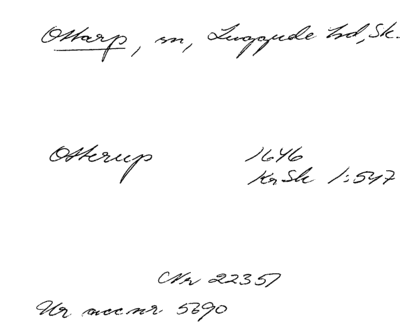 Ottarp, sn, Luggude hd, Sk.
Otterup 1646
KrSk 1:547
Nr 22351
Ur acc nr 5690